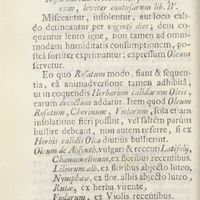 rum, leviter contusarum lib. IV.
Misceantur, insolentur, aut loco cali-
do detineantur per viginti dies; dein co-
quantur lento igne, non tamen ad om-
nimodam humiditatis consumptionem, po-
stea fortiter exprimantur: expressum Oleum
servetur.
Eo quo Rosatum modo, fiant & sequen-
tia, câ animadversione tamen adhibitâ,
ut in coquendis Herbarum calidarum Oleis
earum decoctum addatur. Item quod Oleum
Rosatum, Cheyrinum, Violarum, sola etiam
insolatione fieri possint, vel saltem parum
bullire debeant, non autem referre, si ex
Herbis calidis Olea diutius bulliantur.
Oleum de Absinth. vulgari & recenti Latifolij,
Chamæmelinum, ex floribus recentibus.
Liliorum alb. ex floribus abjecto luteo,
Nymphææ, ex flor. albis abjecto luteo,
Rutæ, ex herba virente,
Violarum, ex Violis recentibus.